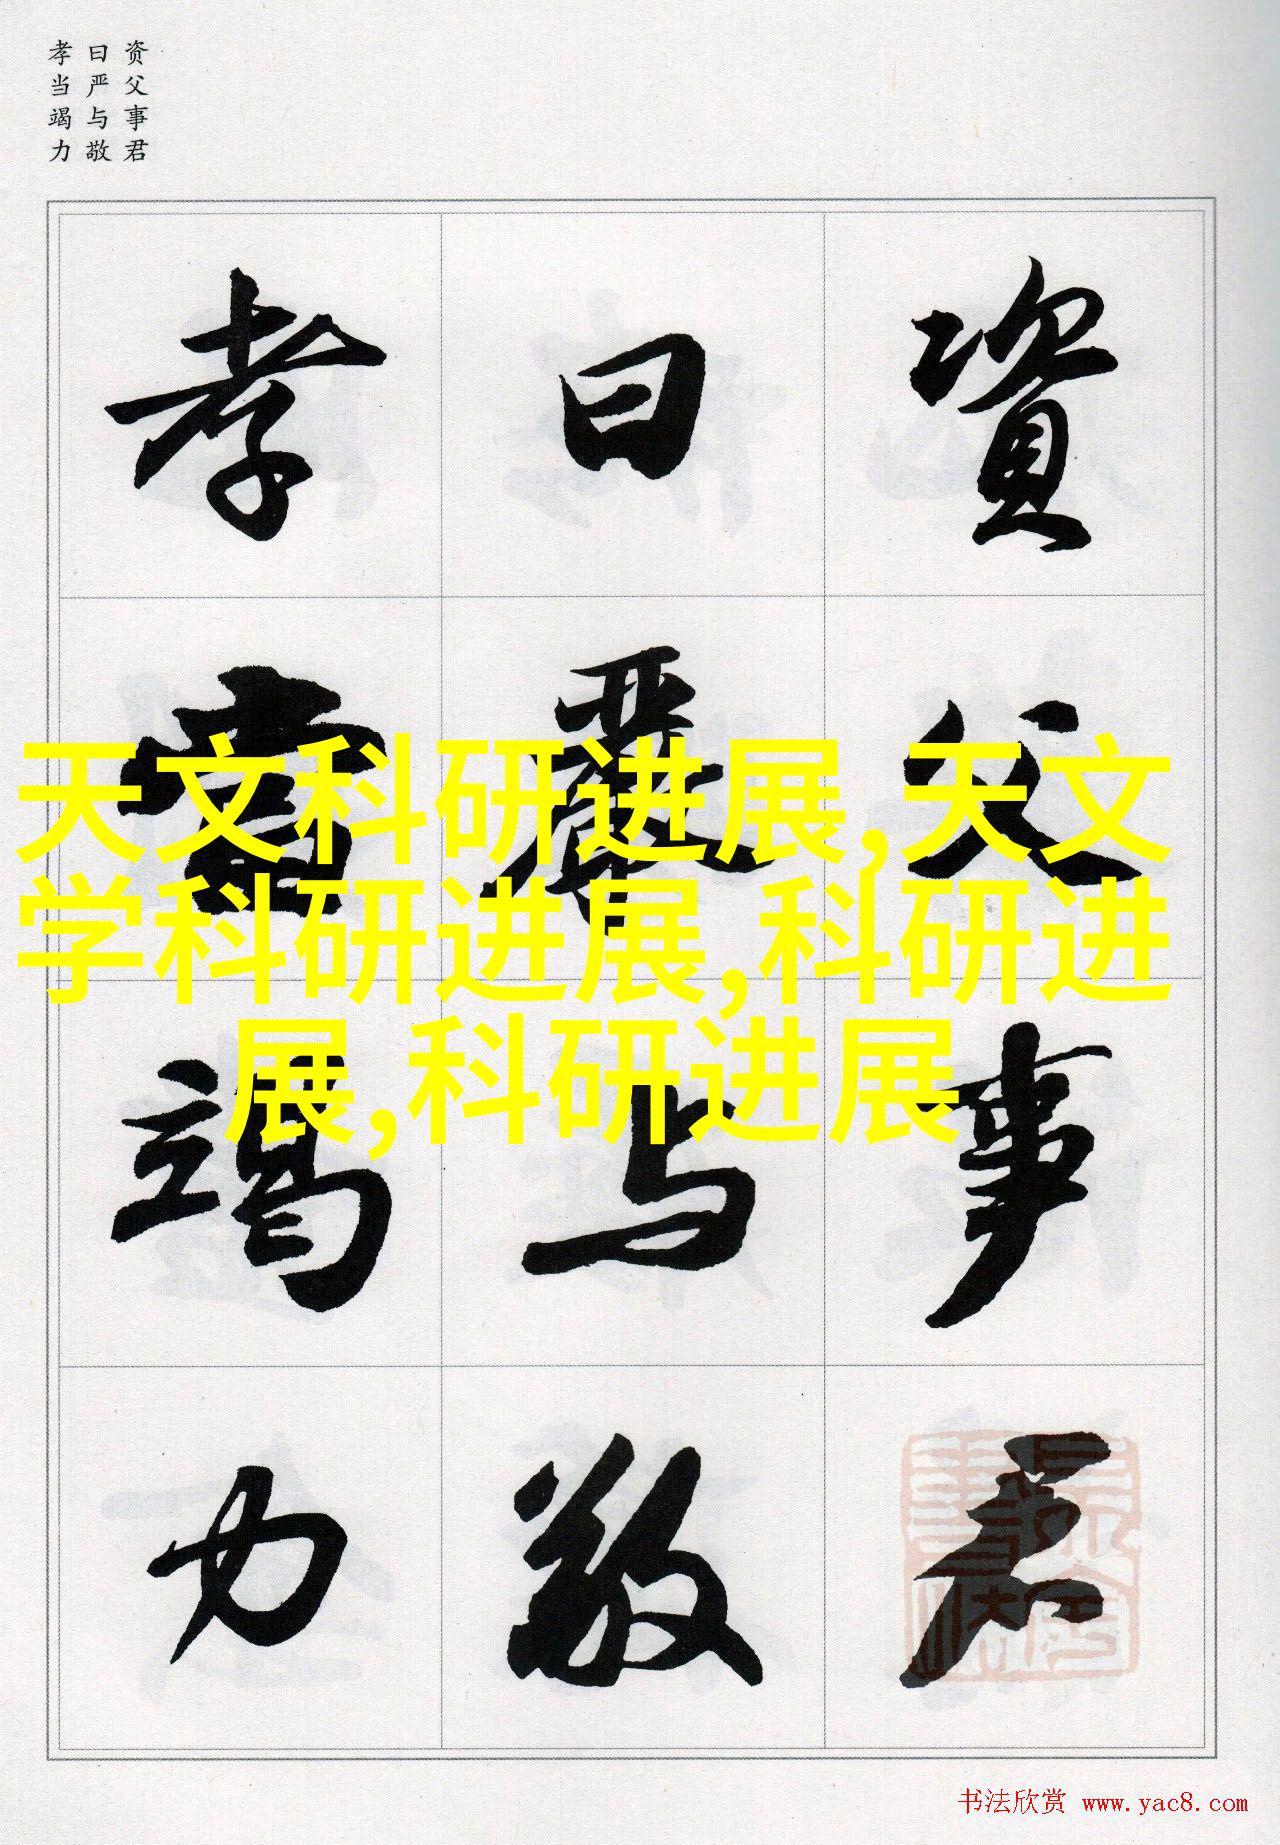 资父事君
曰严与敬
孝当竭力
資父事君
曰嚴与敬
孝當竭力
天文科研进展,天文
学科研进展,科研进
展,科研进展
书法欣赏 www.yac8.com